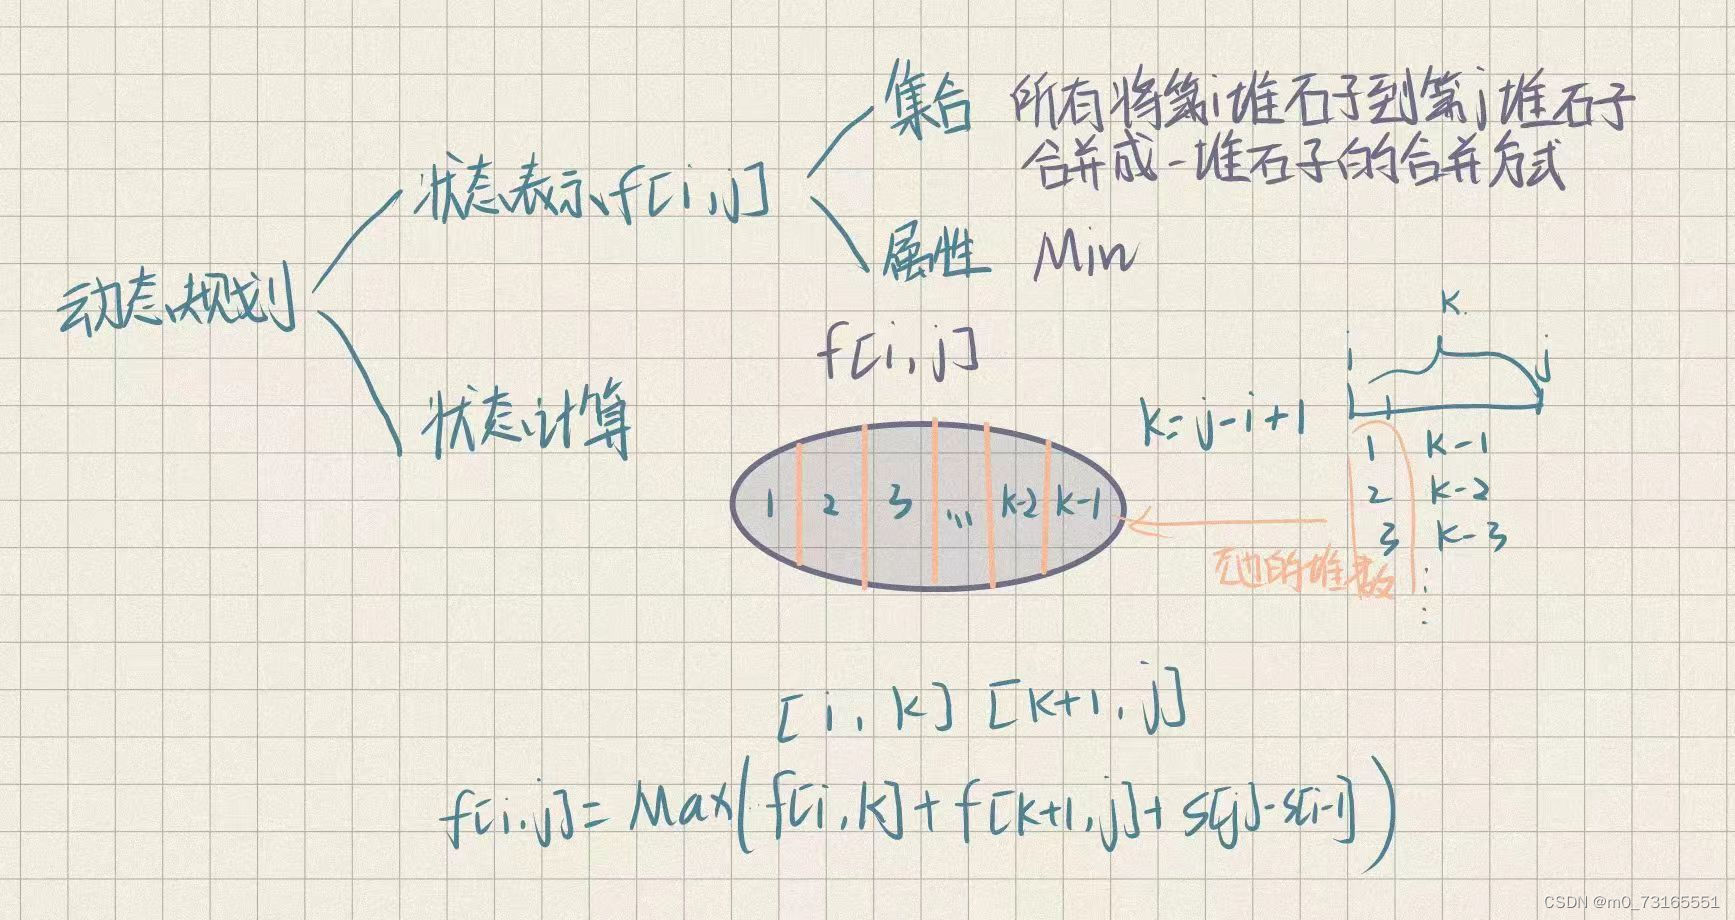 集合 所有将第i堆石子到第j堆石子
合并成一堆石子的合并方式
状态表示f[i,j]
属性 Min
动态规划
状态计算
f[i,j]
k
i j
k=j-i+1
1
1 k-1
2 k-2
3 k-3
⋮
1 2 3 ... k-2 k-1
的堆数
[i,k] [k+1,j]
f[i,j]=Max(f[i,k]+f[k+1,j]+s[j]-s[i-1])
CSDN @m0_73165551